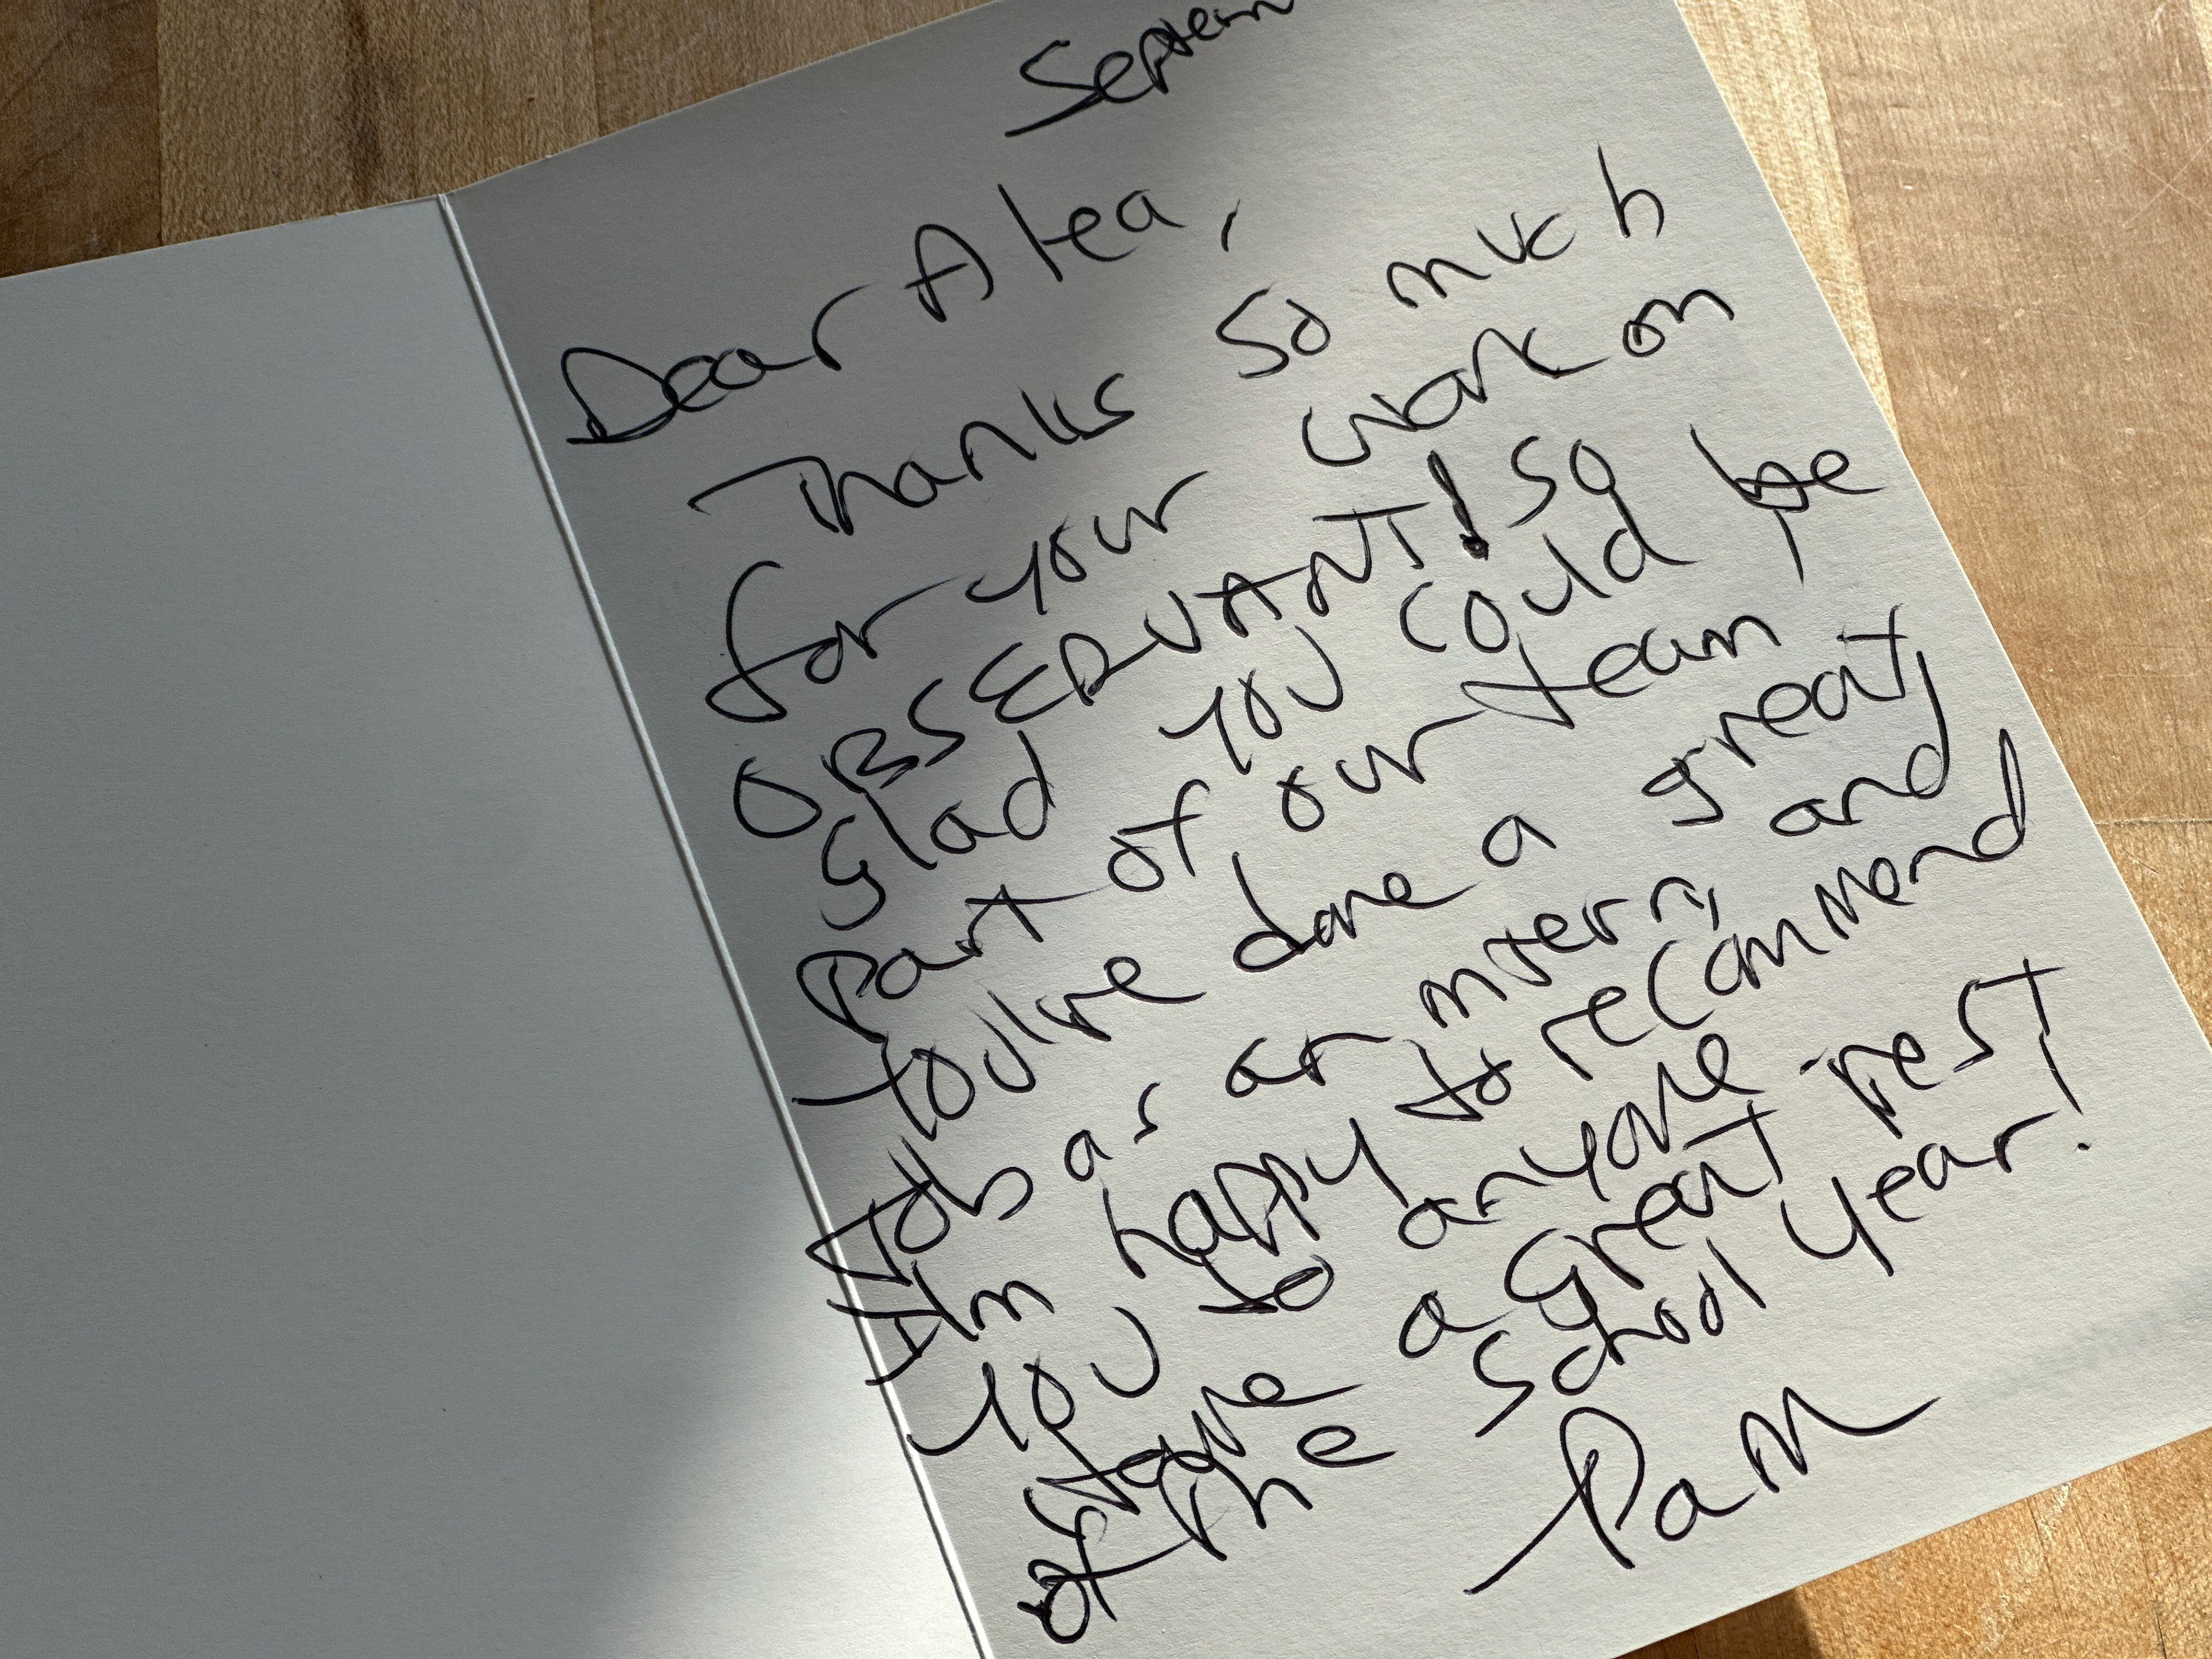 Septem
Dear Alea,
Thanks so much
for your work on
OBSERVANT! So
glad you could be
part of our team!
You've done a great
job as an intern, and
I'm happy to recommend
you to anyone.
Have a great rest
of the school year!
Pam